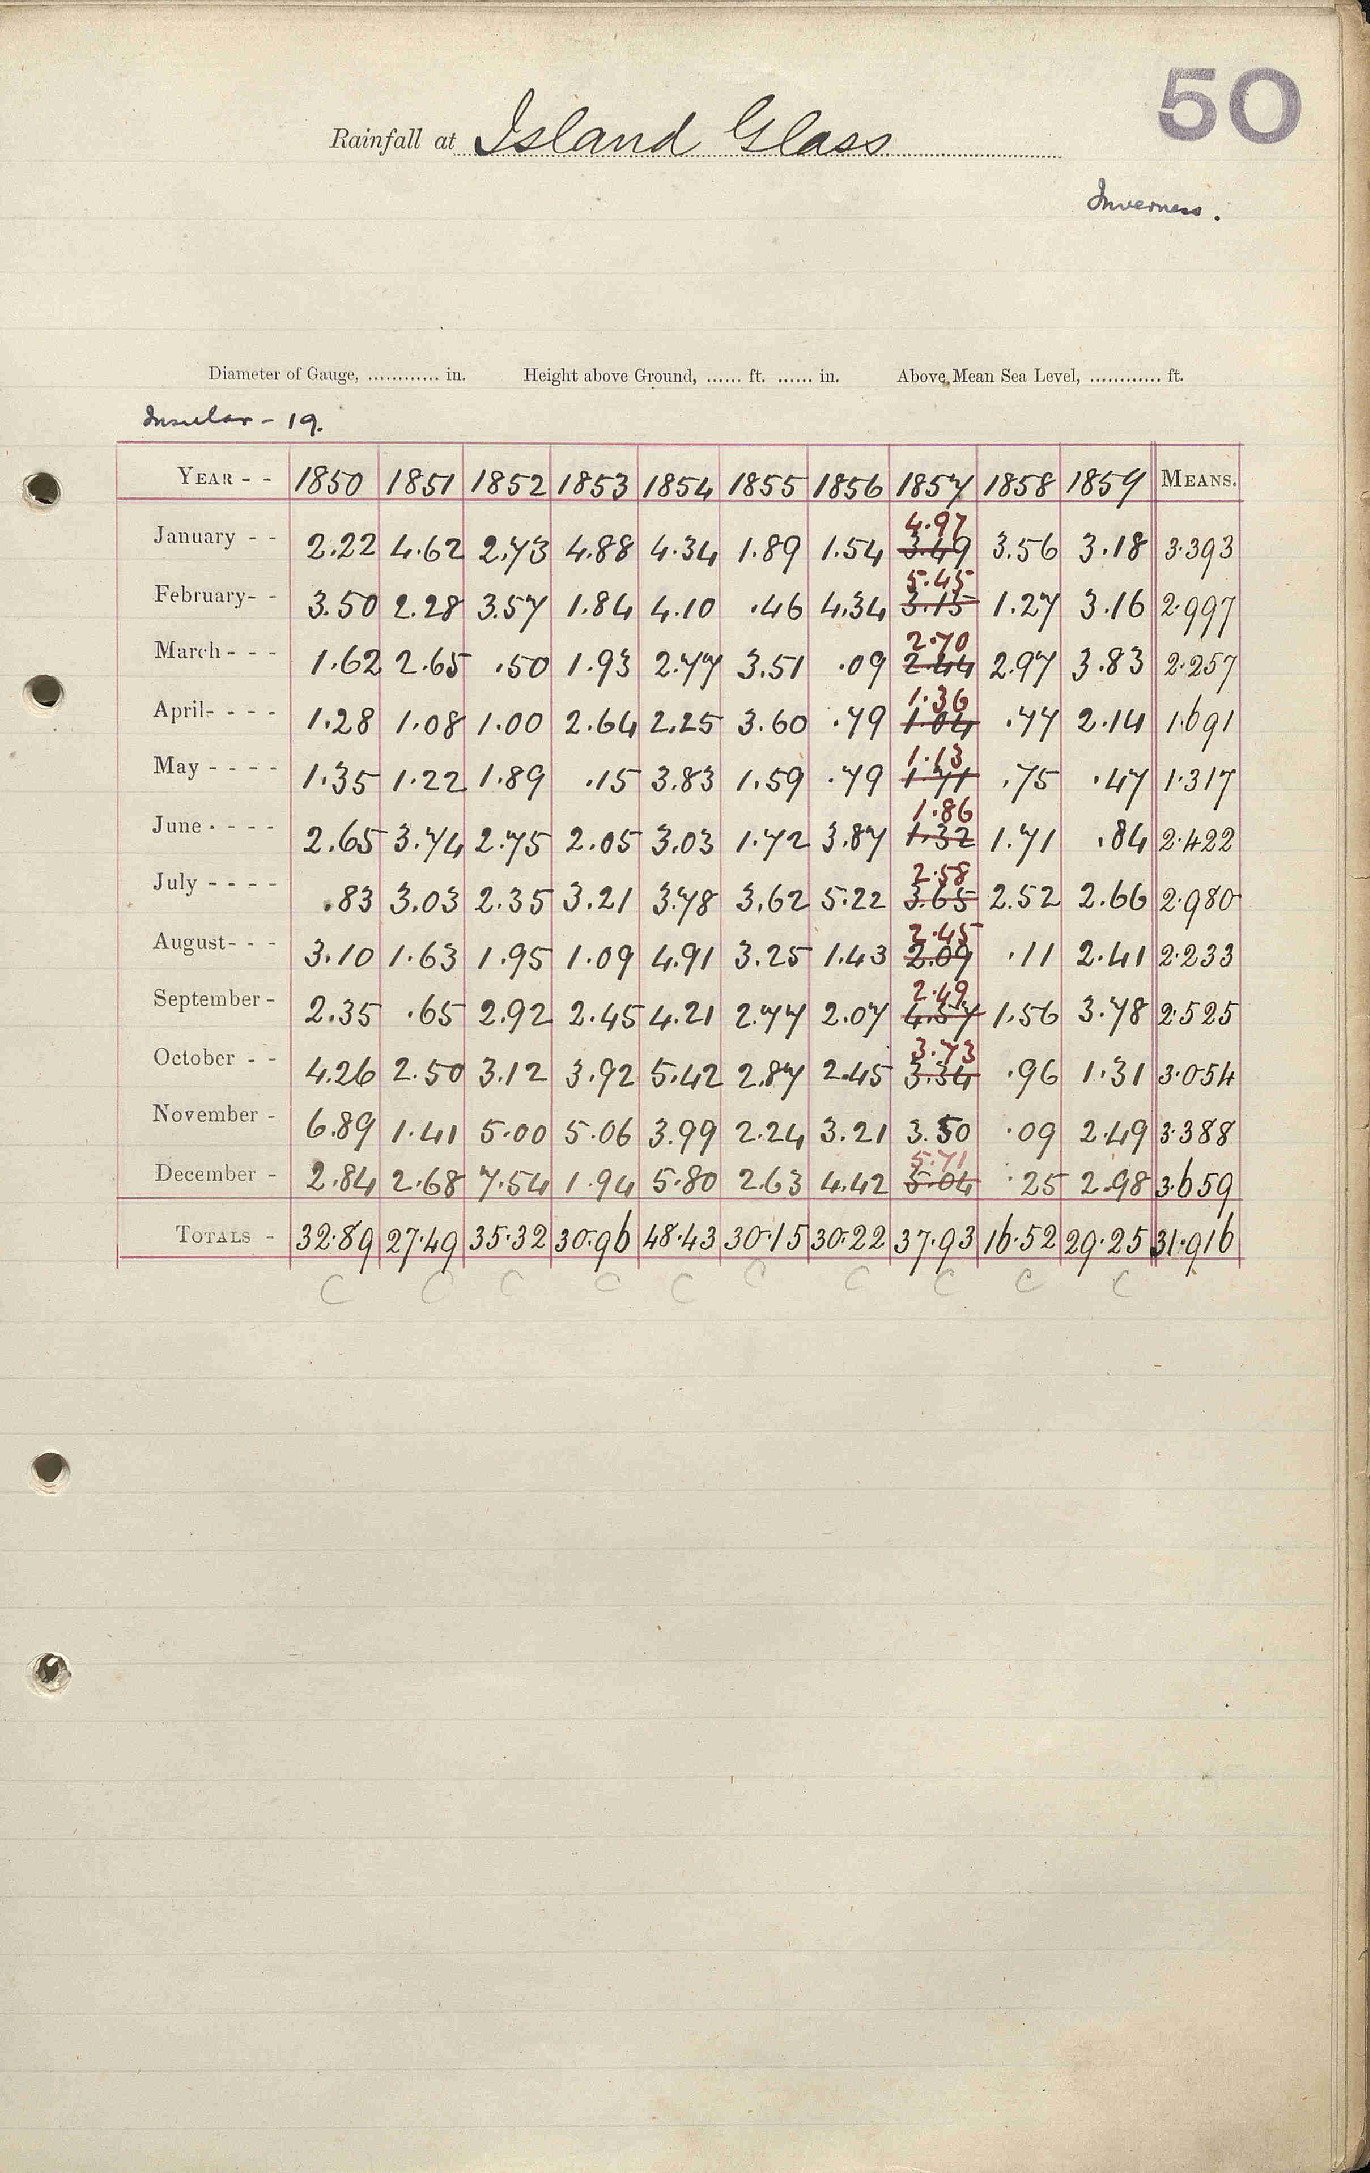 50
Rainfall at Island Glass
Inverness.
Diameter of Gauge, ............ in. Height above Ground, ...... ft. ...... in. Above Mean Sea Level, ............ ft.
Insular - 19.
YEAR - - 1850 1851 1852 1853 1854 1855 1856 1857 1858 1859 MEANS.
4.97
January - - 2.22 4.62 2.73 4.88 4.34 1.89 1.54 3.49 3.56 3.18 3.393
5.45
February- - 3.50 2.28 3.57 1.84 4.10 .46 4.34 3.15 1.27 3.16 2.997
2.70
March - - - 1.62 2.65 .50 1.93 2.77 3.51 .09 2.44 2.97 3.83 2.257
1.36
April- - - - 1.28 1.08 1.00 2.64 2.25 3.60 .79 1.04 .77 2.14 1.691
1.13
May - - - - 1.35 1.22 1.89 .15 3.83 1.59 .79 1.71 .75 .47 1.317
1.86
June - - - - 2.65 3.74 2.75 2.05 3.03 1.72 3.87 1.32 1.71 .84 2.422
2.58
July - - - - .83 3.03 2.35 3.21 3.78 3.62 5.22 3.65 2.52 2.66 2.980
2.45
August- - - 3.10 1.63 1.95 1.09 4.91 3.25 1.43 2.09 .11 2.41 2.233
2.49
September - 2.35 .65 2.92 2.45 4.21 2.77 2.07 4.57 1.56 3.78 2.525
3.73
October - - 4.26 2.50 3.12 3.92 5.42 2.87 2.45 3.34 .96 1.31 3.054
November - 6.89 1.41 5.00 5.06 3.99 2.24 3.21 3.50 .09 2.49 3.388
5.71
December - 2.84 2.68 7.54 1.94 5.80 2.63 4.42 5.04 .25 2.98 3.659
TOTALS - 32.89 27.49 35.32 30.96 48.43 30.15 30.22 37.93 16.52 29.25 31.916
C C C C C C C C C C